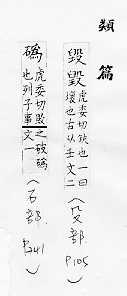 類篇
毁毀 虎委切缺也一曰
壞也古从壬文二
(殳部 P.105)
䃣 虎委切毁
也列子事
之破䃣
文一
(石部 P.341)